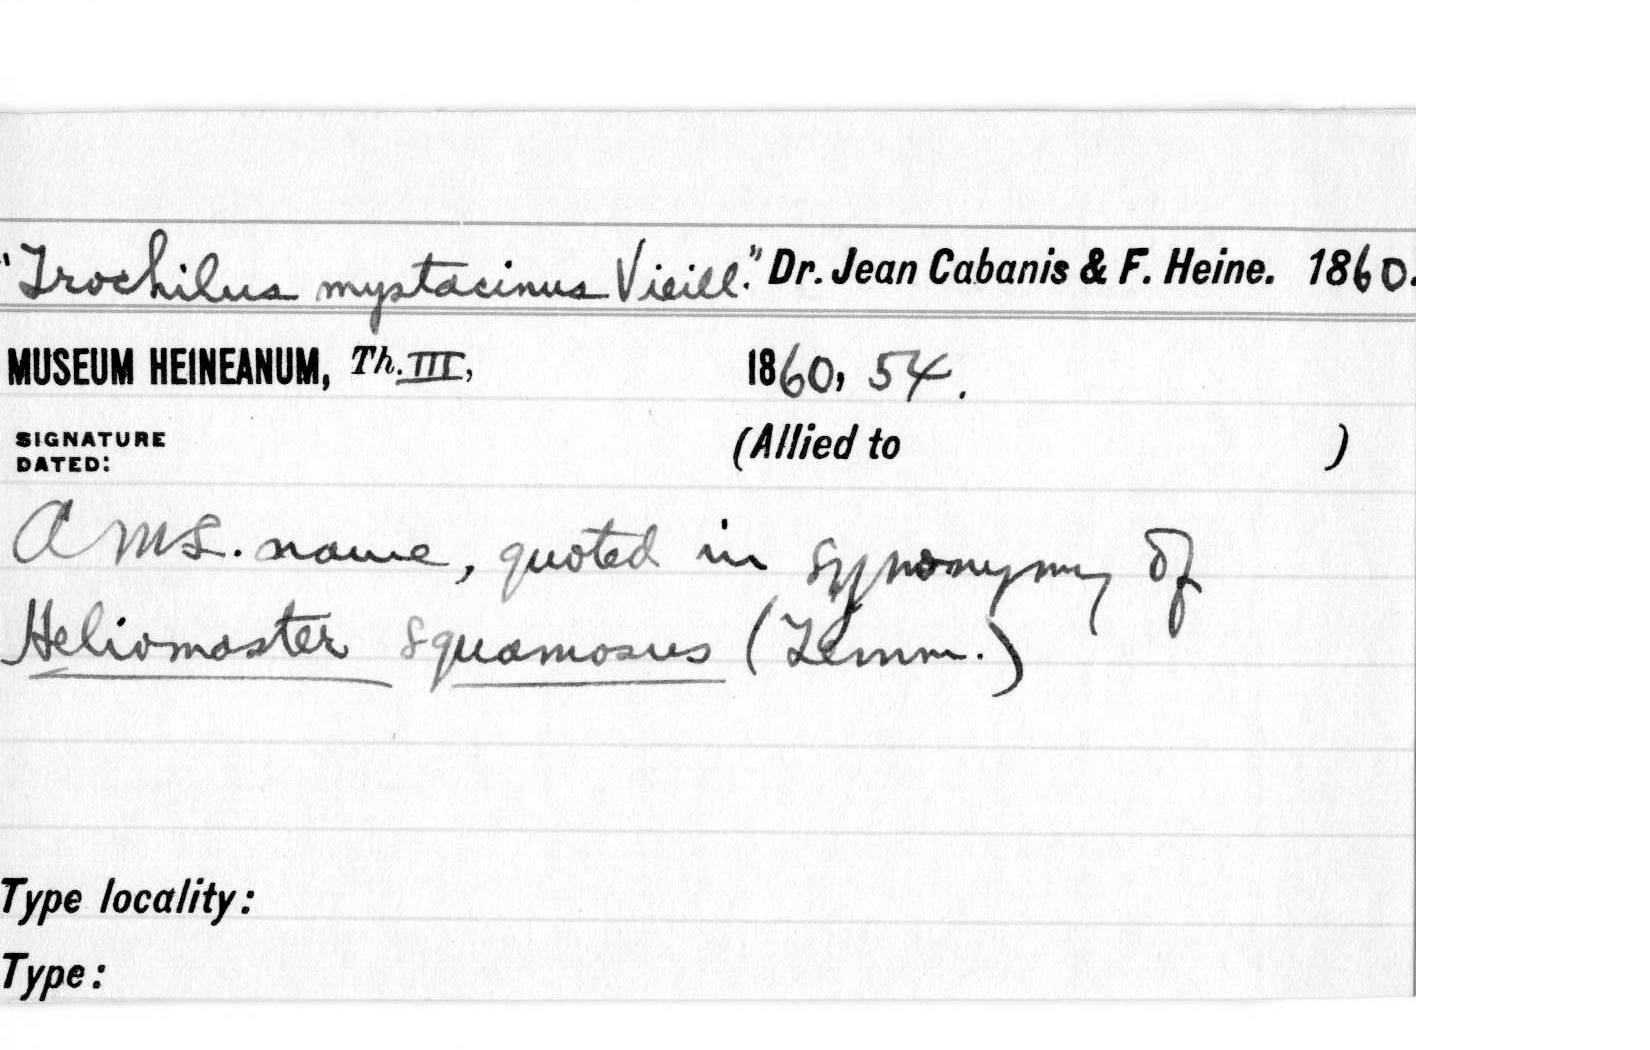 "Trochilus mystacinus Vieill." Dr. Jean Cabanis & F. Heine. 1860.
MUSEUM HEINEANUM, Th. III, 1860, 54.
SIGNATURE DATED: (Allied to )
A MS. name, quoted in synonymy of
Heliomaster squamosus (Temm.)
Type locality:
Type: